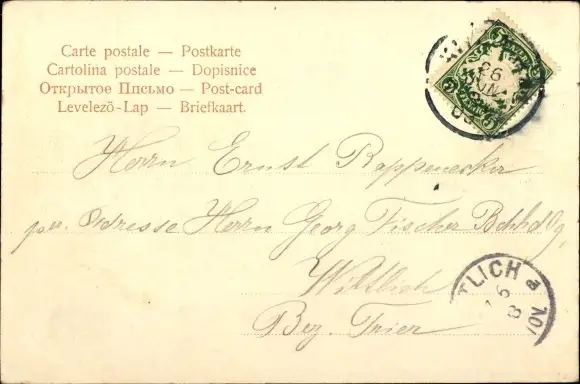 Carte postale — Postkarte
Cartolina postale — Dopisnice
Открытое Письмо — Post-card
Levelező-Lap — Briefkaart.
26
JUN
5
5
Herrn Ernst Rappenecker
per Adresse Herrn Georg Fischer Bchhdlg,
Wittlich
Bez. Trier
TLICH